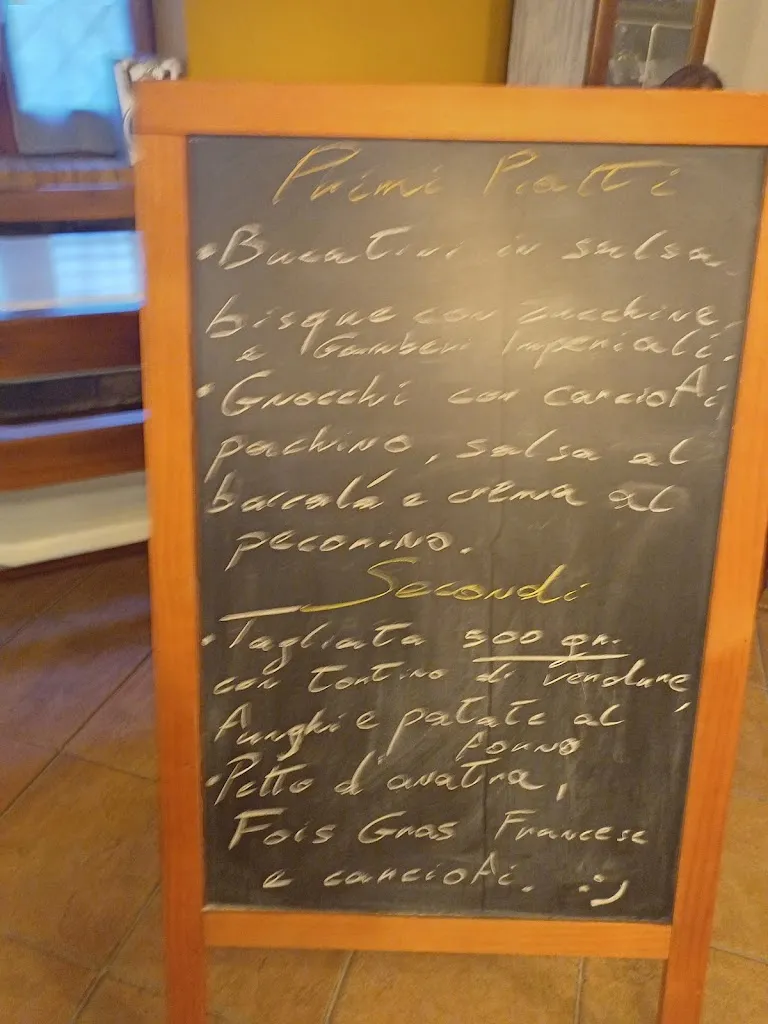 Primi Piatti
• Bucatini in salsa
bisque con zucchine,
e Gamberi Imperiali.
• Gnocchi con carciofi,
pachino, salsa al
baccalá e crema al
pecorino.
Secondi
• Tagliata 500 gr.
con tortino di verdure,
funghi e patate al
forno
• Petto d'anatra,
Fois Gras Francese
e carciofi. :)